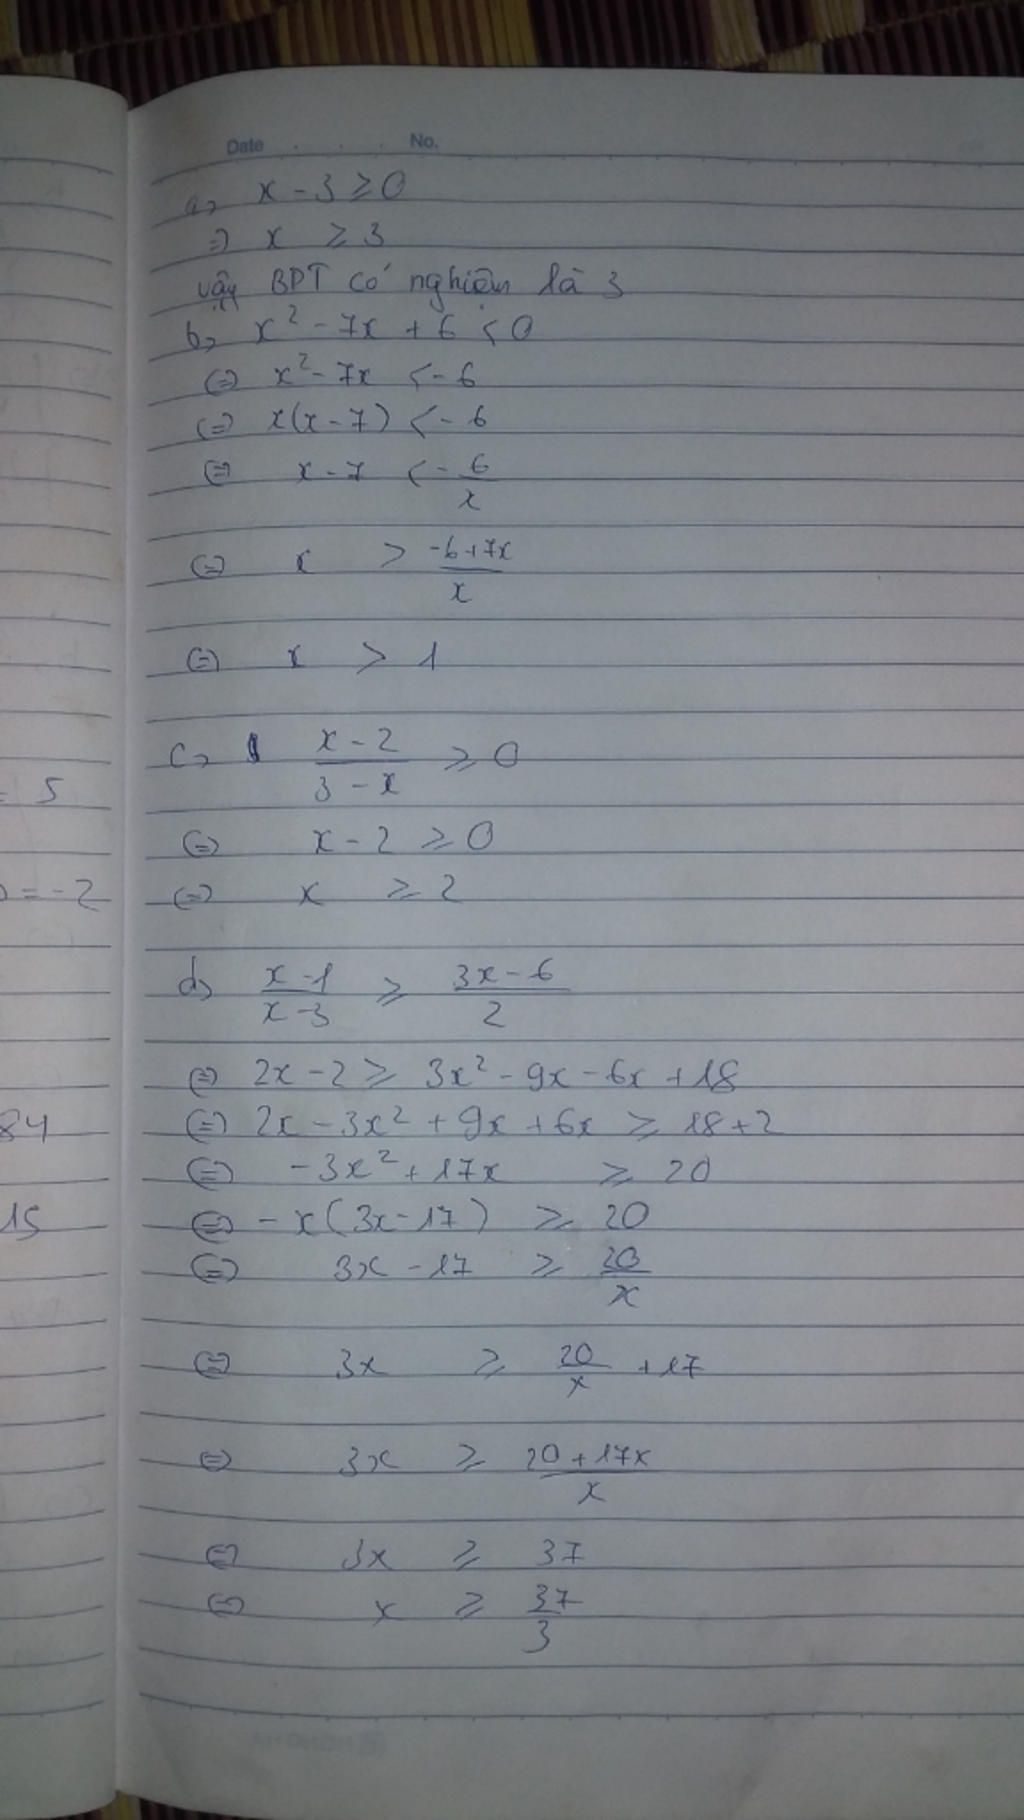 Date . . . No.
a, x - 3 ≥ 0
=) x ≥ 3
vậy BPT có nghiệm là 3
b, x² - 7x + 6 < 0
(=) x² - 7x < - 6
(=) x(x - 7) < - 6
(=) x - 7 < - 6/x
(=) x > (-6+7x)/x
(=) x > 1
c, (x - 2)/(3 - x) ≥ 0
= 5
(=) x - 2 ≥ 0
= -2
(=) x ≥ 2
d, (x - 1)/(x - 3) ≥ (3x - 6)/2
(=) 2x - 2 ≥ 3x² - 9x - 6x + 18
84
(=) 2x - 3x² + 9x + 6x ≥ 18 + 2
(=) - 3x² + 17x ≥ 20
15
(=) - x(3x - 17) ≥ 20
(=) 3x - 17 ≥ 20/x
(=) 3x ≥ 20/x + 17
(=) 3x ≥ (20 + 17x)/x
(=) 3x ≥ 37
(=) x ≥ 37/3